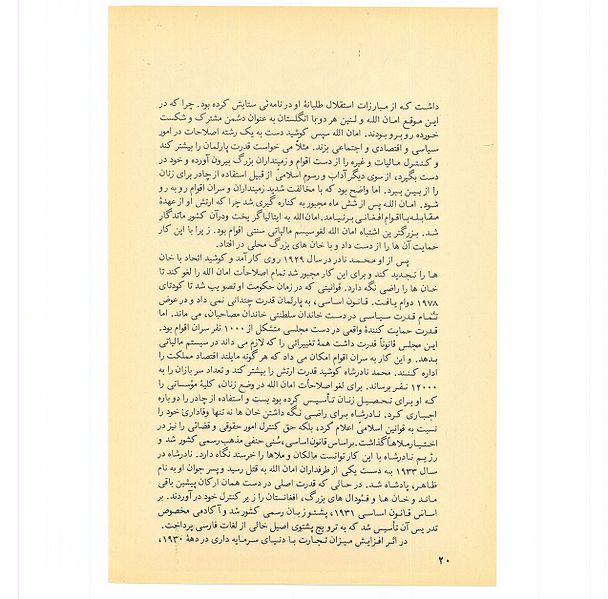 داشت که از مبارزات استقلال طلبانهٔ او در نامه‌ئی ستایش کرده بود. چرا که در
این موقع امان الله و لنین هر دو با انگلستان به عنوان دشمن مشترک و شکست
خورده روبرو بودند. امان الله سپس کوشید دست به یک رشته اصلاحات در امور
سیاسی و اقتصادی و اجتماعی بزند. مثلاً می خواست قدرت پارلمان را بیشتر کند
و کنترل مالیات و غیره را از دست اقوام و زمینداران بزرگ بیرون آورده و خود در
دست بگیرد، از سوی دیگر آداب و رسوم اسلامی از قبیل استفاده از چادر برای زنان
را از بین ببرد. اما واضح بود که با مخالفت شدید زمینداران و سران اقوام رو به رو
شود. امان الله پس از شش ماه مجبور به کناره گیری شد چرا که ارتش او از عهدهٔ
مقابله با اقوام افغانی برنیامد. امان الله به ایتالیا گریخت و در آن کشور ماندگار
شد. بزرگترین اشتباه امان الله لغو سیستم مالیاتی سنتی اقوام بود. زیرا با این کار
حمایت آن ها را از دست داد و با خان های بزرگ محلی در افتاد.
پس از او محمد نادر در سال ۱۹۲۹ روی کار آمد و کوشید اتحاد با خان
ها را تجدید کند و برای این کار مجبور شد تمام اصلاحات امان الله را لغو کند تا
خان ها را راضی نگه دارد. قوانینی که در زمان حکومت او تصویب شد تا کودتای
۱۹۷۸ دوام یافت. قانون اساسی، به پارلمان قدرت چندانی نمی داد و در عوض
تمام قدرت سیاسی در دست خاندان سلطنتی خاندان مصاحبان، می ماند. اما
قدرت حمایت کنندهٔ واقعی در دست مجلسی متشکل از ۱۰۰۰ نفر سران اقوام بود.
این مجلس قانوناً قدرت داشت همهٔ تغییراتی را که لازم می داند در سیستم مالیاتی
بدهد. و این کار به سران اقوام امکان می داد که هر گونه مایلند اقتصاد مملکت را
اداره کنند. محمد نادرشاه کوشید قدرت ارتش را بیشتر کند و تعداد سربازان را به
۱۲۰۰۰ نفر برساند. برای لغو اصلاحات امان الله در وضع زنان، کلیهٔ مؤسساتی را
که او برای تحصیل زنان تأسیس کرده بود بست و استفاده از چادر را دوباره
اجباری کرد. نادرشاه برای راضی نگه داشتن خان ها نه تنها وفاداری خود را
نسبت به قوانین اسلامی اعلام کرد، بلکه حق کنترل امور حقوقی و قضائی را نیز در
اختیار ملاها گذاشت. براساس قانون اساسی، سُنی حنفی مذهب رسمی کشور شد و
رژیم نادرشاه با این کار توانست مالکان و ملاها را خرسند نگاه دارد. نادرشاه در
سال ۱۹۳۳ به دست یکی از طرفداران امان الله به قتل رسید و پسر جوان او به نام
ظاهر، پادشاه شد. در حالی که قدرت اصلی در دست همان ارکان پیشین باقی
ماند و خان ها و فئودال های بزرگ، افغانستان را زیر کنترل خود در آوردند. بر
اساس قانون اساسی ۱۹۳۱، پشتو زبان رسمی کشور شد و آکادمی مخصوص
تدریس آن تأسیس شد که به ترویج پشتوی اصیل خالی از لغات فارسی پرداخت.
در اثر افزایش میزان تجارت با دنیای سرمایه داری در دههٔ ۱۹۳۰،
۲۰